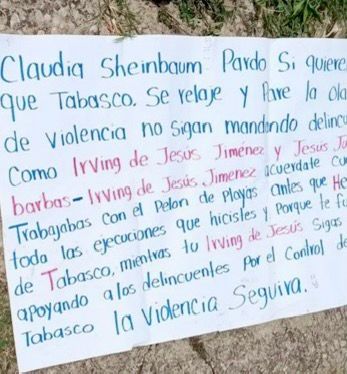 Claudia Sheinbaum Pardo Si quiere
que Tabasco. Se relaje y Pare la ola
de violencia no sigan mandando delincu
Como Irving de Jesús Jiménez y Jesús Ju
barbas-Irving de Jesús Jimenez acuerdate cu
Trabajabas con el Pelon de Playas antes que He
toda las ejecuciones que hicistes y Porque te fu
de Tabasco, mientras tu Irving de Jesús Sigas
apoyando a los delincuentes Por el Control de
Tabasco la Violencia Seguira.